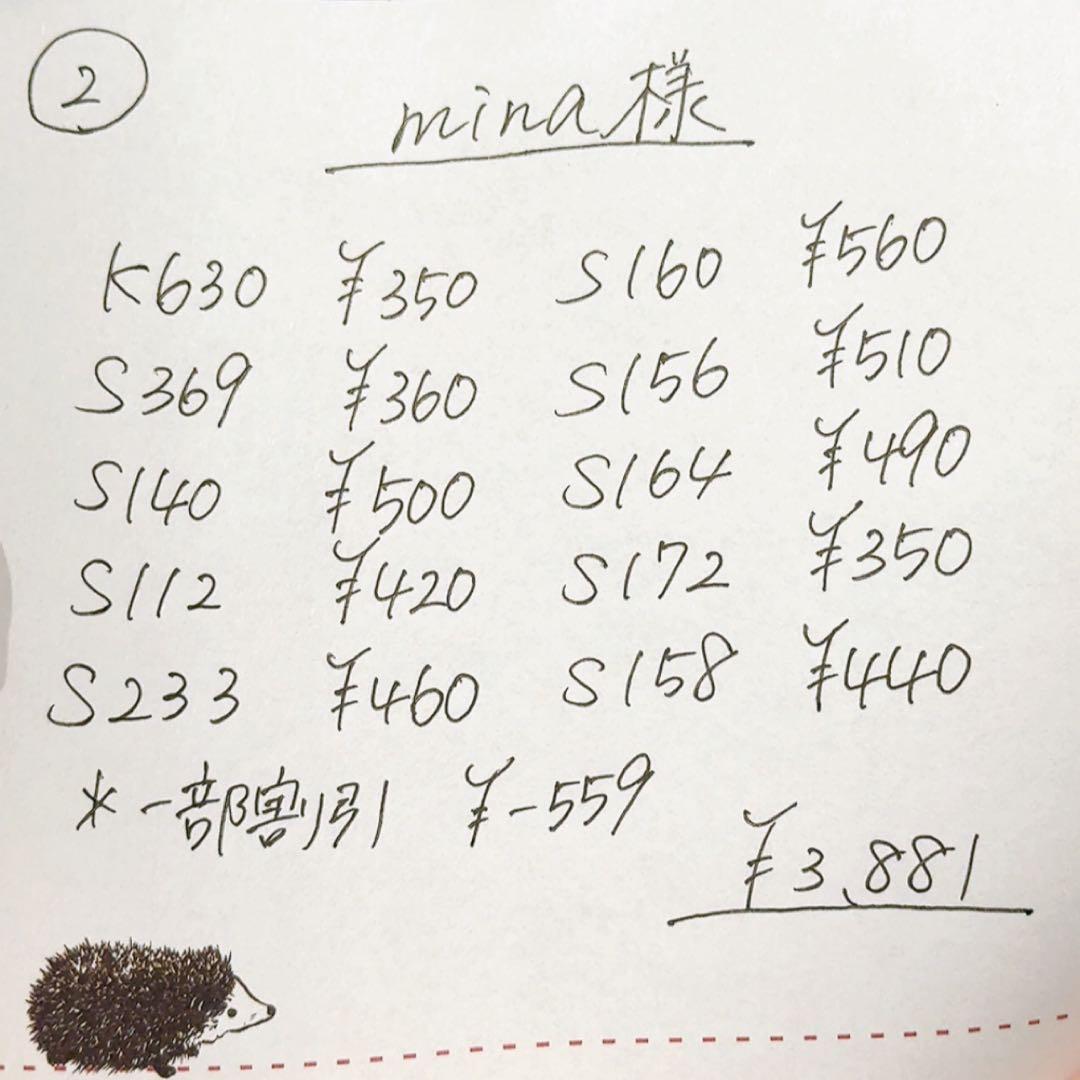 ②
mina様
K630 ¥350 S160 ¥560
S369 ¥360 S156 ¥510
S140 ¥500 S164 ¥490
S112 ¥420 S172 ¥350
S233 ¥460 S158 ¥440
*一部割引 ¥-559
¥3,881